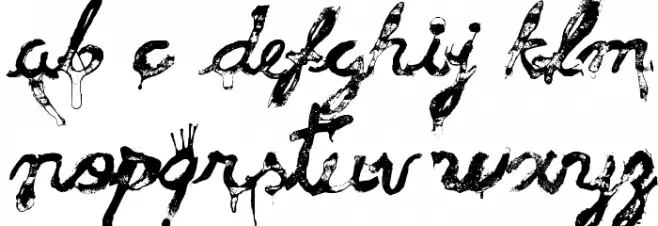 ab c defghij klm
nopqrstuv wxyz